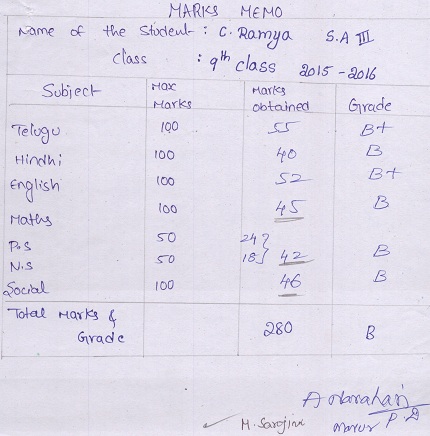 MARKS MEMO
Name of the Student : C. Ramya S.A III
Class : 9th class 2015-2016
Subject Max Marks Marks obtained Grade
Telugu 100 55 B+
Hindhi 100 40 B
English 100 52 B+
Maths 100 45 B
P.S 50 24
N.S 50 18 } 42 B
Social 100 46 B
Total Marks & Grade 280 B
M. Sarojini P.D